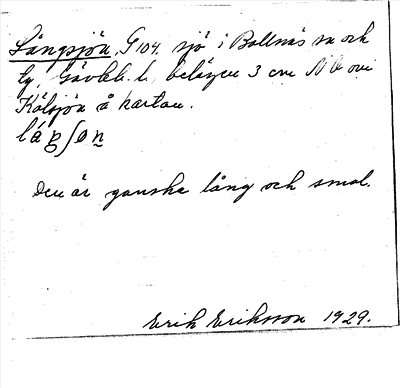 Långsjön, G 104, sjö i Bollnäs sn och
tg, Gävleb. l., belägen 3 cm NV om
Kälsjön å kartan.
Den är ganska lång och smal.
Erik Eriksson 1929.